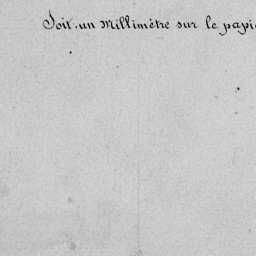 Soit un Millimètre sur le papi